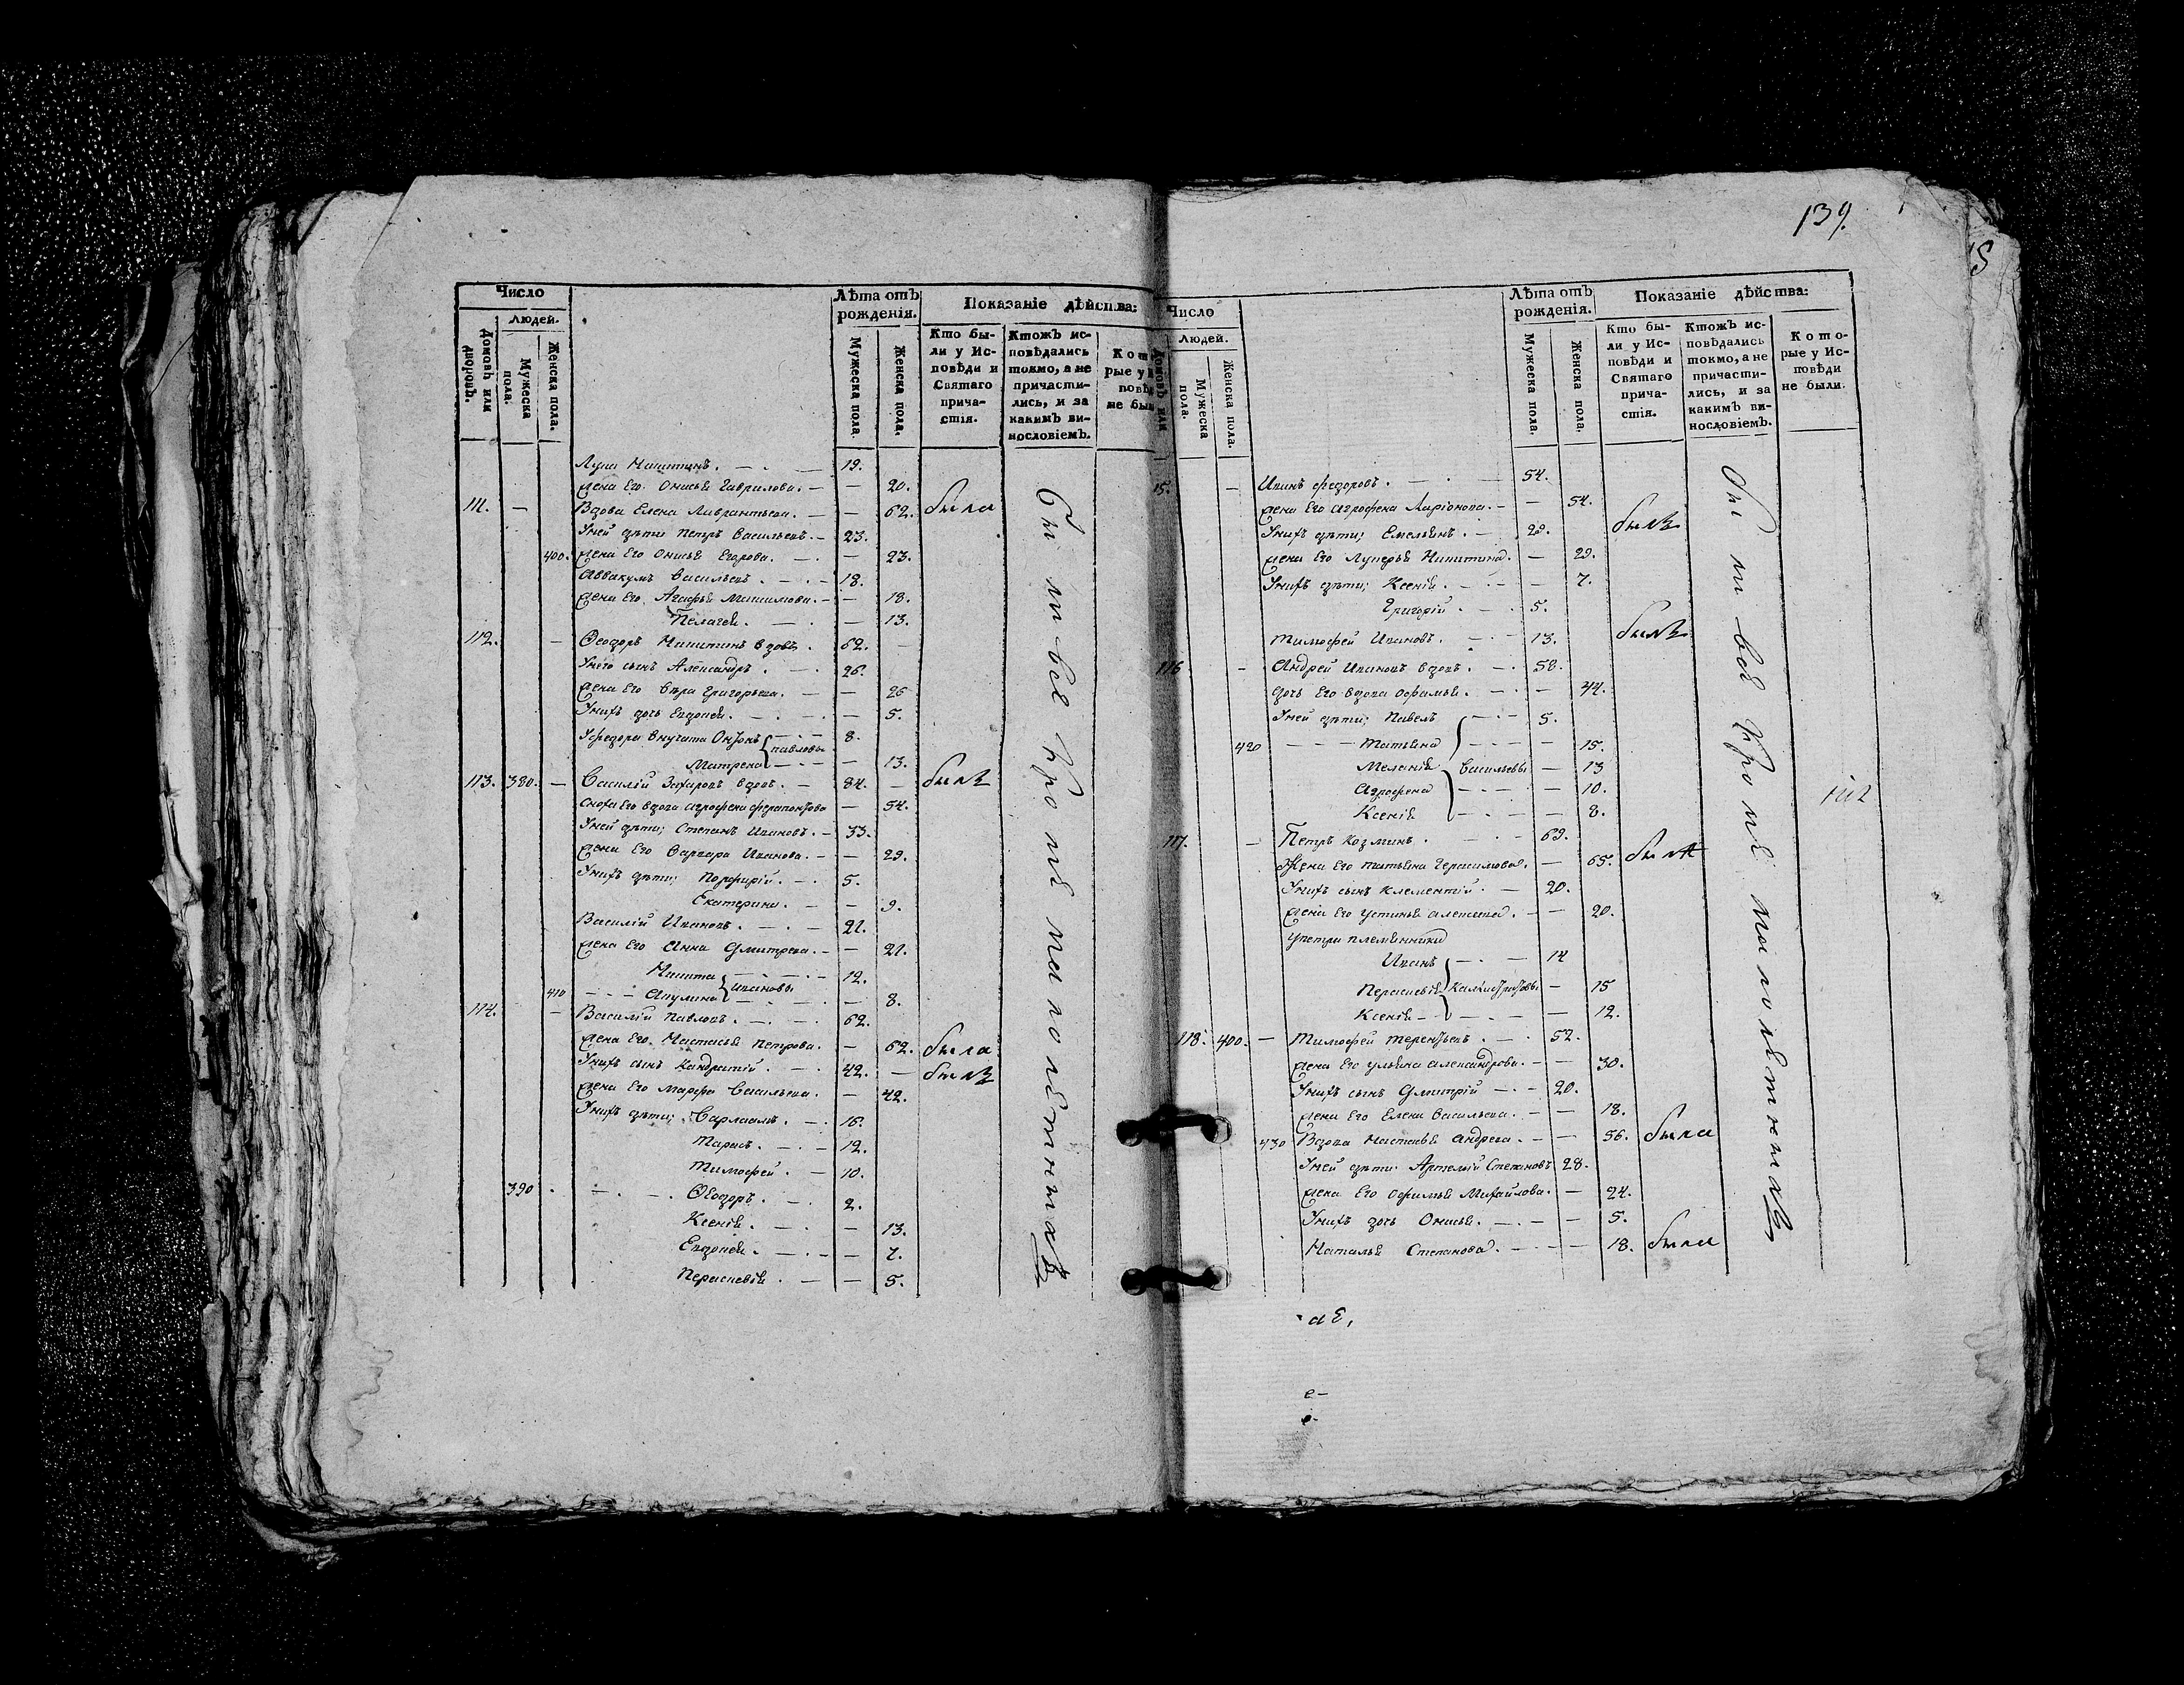 139.
Число
Людей.
Домовъ или дворовъ.
Мужеска пола.
Женска пола.
Лѣта отъ рожденія.
Мужеска пола.
Женска пола.
Показаніе дѣйства:
Кто бы-
ли у Ис-
повѣди и
Святаго
прича-
стія.
Ктожъ ис-
повѣдались
токмо, а не
причасти-
лись, и за
какимъ ви-
нословіемъ.
Кот
рые у
повѣ
не бы
Лука Никитинъ. 19.
жена Его Онисья Гаврилова. 20.
111. Вдова Елена Лаврантьева. 62. была
Уней дѣти Петръ Васильевъ 23.
400. жена Его Онисья Егорова. 23.
Аввакумъ Васильевъ. 18.
жена Его Агафья Максимова. 18.
Пелагея. 13.
112. Ѳеодоръ Никитинъ вдовъ. 62.
Унего сынъ Александръ. 26.
жена Его Вѣра Григорьева. 26
Унихъ дочь Евдокея. 5.
Уфедора внучата 8.
Матрена павловы 13.
113. 380. Василій Захаровъ вдовъ. 84. былъ
Сноха Его вдова Агрофена 54.
Уней дѣти; Степанъ Ивановъ. 33.
жена Его Варвара Иванова. 29.
Унихъ дѣти; Порфирій. 5.
Екатерина. 9.
Василій Ивановъ. 21.
жена Его Анна Дмитрева. 21.
Никита Ивановы 12.
410 Акулина 8.
114. Василій Павловъ. 62.
жена Его Настасья Петрова. 62. была
Унихъ сынъ Кандратій. 42. былъ
жена Его Марфа Васильева. 42.
Унихъ дѣти; Варлаамъ. 16.
Тарасъ. 12.
Тимофей. 10.
390 Ѳеодоръ. 2.
Ксенія. 13.
Евдокея. 7.
Пераскевія. 5.
кромѣ малолѣтныхъ
Число
Людей.
Мужеска пола.
Женска пола.
Лѣта отъ рожденія.
Мужеска пола.
Женска пола.
Показаніе дѣйства:
Кто бы-
ли у Ис-
повѣди и
Святаго
прича-
стія.
Ктожъ ис-
повѣдались
токмо, а не
причасти-
лись, и за
какимъ ви-
нословіемъ.
Кото-
рые у Ис-
повѣди
не были.
15. Иванъ Федоровъ. 54.
жена Его Агрофена Ларіонова. 54.
Унихъ дѣти; Емельянъ. 29. былъ
жена Его Лукерья Никитина. 29.
Унихъ дѣти; Ксенія. 7.
Григорій. 5.
Тимофей Ивановъ. 13. былъ
116 Андрей Ивановъ вдовъ. 58.
дочь Его вдова Офимья. 44.
Уней дѣти; Павелъ 5.
420 Татьяна 15.
Меланія Васильевы 13
Агрофена 10.
Ксенія 8.
117. Петръ Козминъ. 69.
Жена Его Татьяна Герасимова. 65.
Унихъ сынъ Клементій. 20.
жена Его Устинья Алексева. 20.
Упетра племянники
Иванъ 14
Пераскевія 15
Ксенія 12.
118. 400. Тимофей Терентьевъ. 52.
жена Его Ульяна Александрова. 30.
Унихъ сынъ Дмитрій 20.
жена Его Елена Васильева. 18.
430 Вдова Настасья Андрева. 56. была
Уней дѣти. Артемій Степановъ 28.
жена Его Офимья Михайлова. 24.
Унихъ дочь Онисья. 5.
Наталья Степанова. 18. была
кромѣ малолѣтныхъ